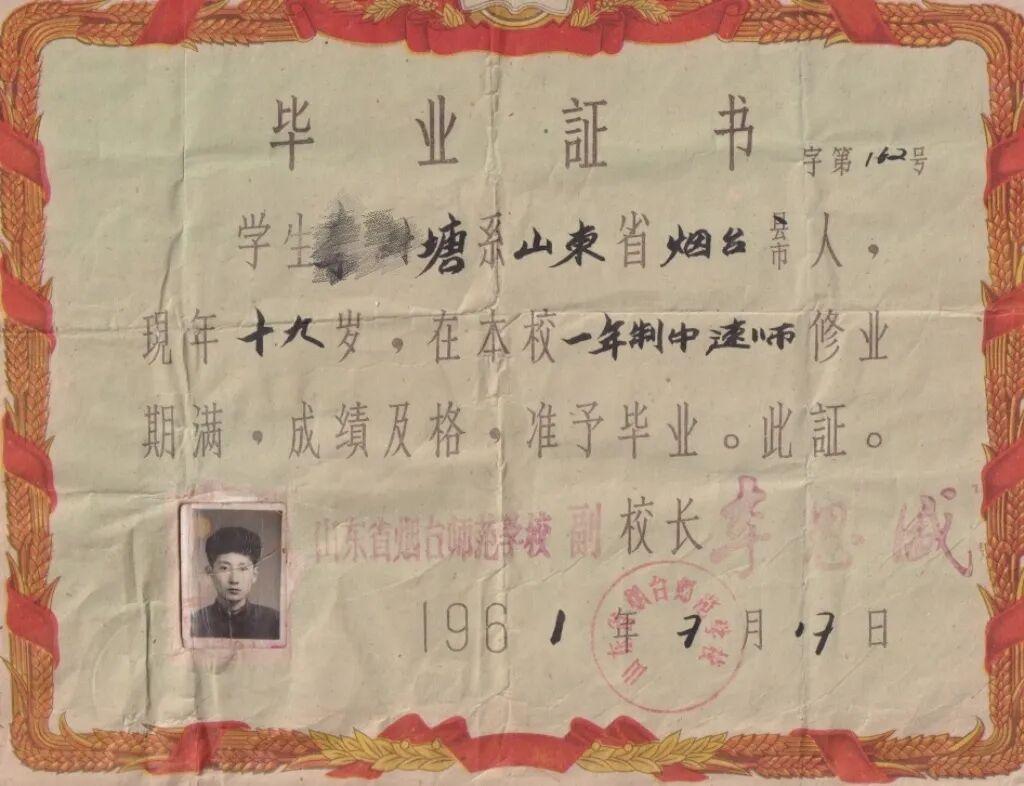 毕业証书
字第162号
学生 塘系山東省烟台县市人，
现年十九岁，在本校一年制中速师修业
期满，成绩及格，准予毕业。此証。
山东省烟台师范学校 副 校长 车 成
1961年7月17日
山东省烟台师范学校